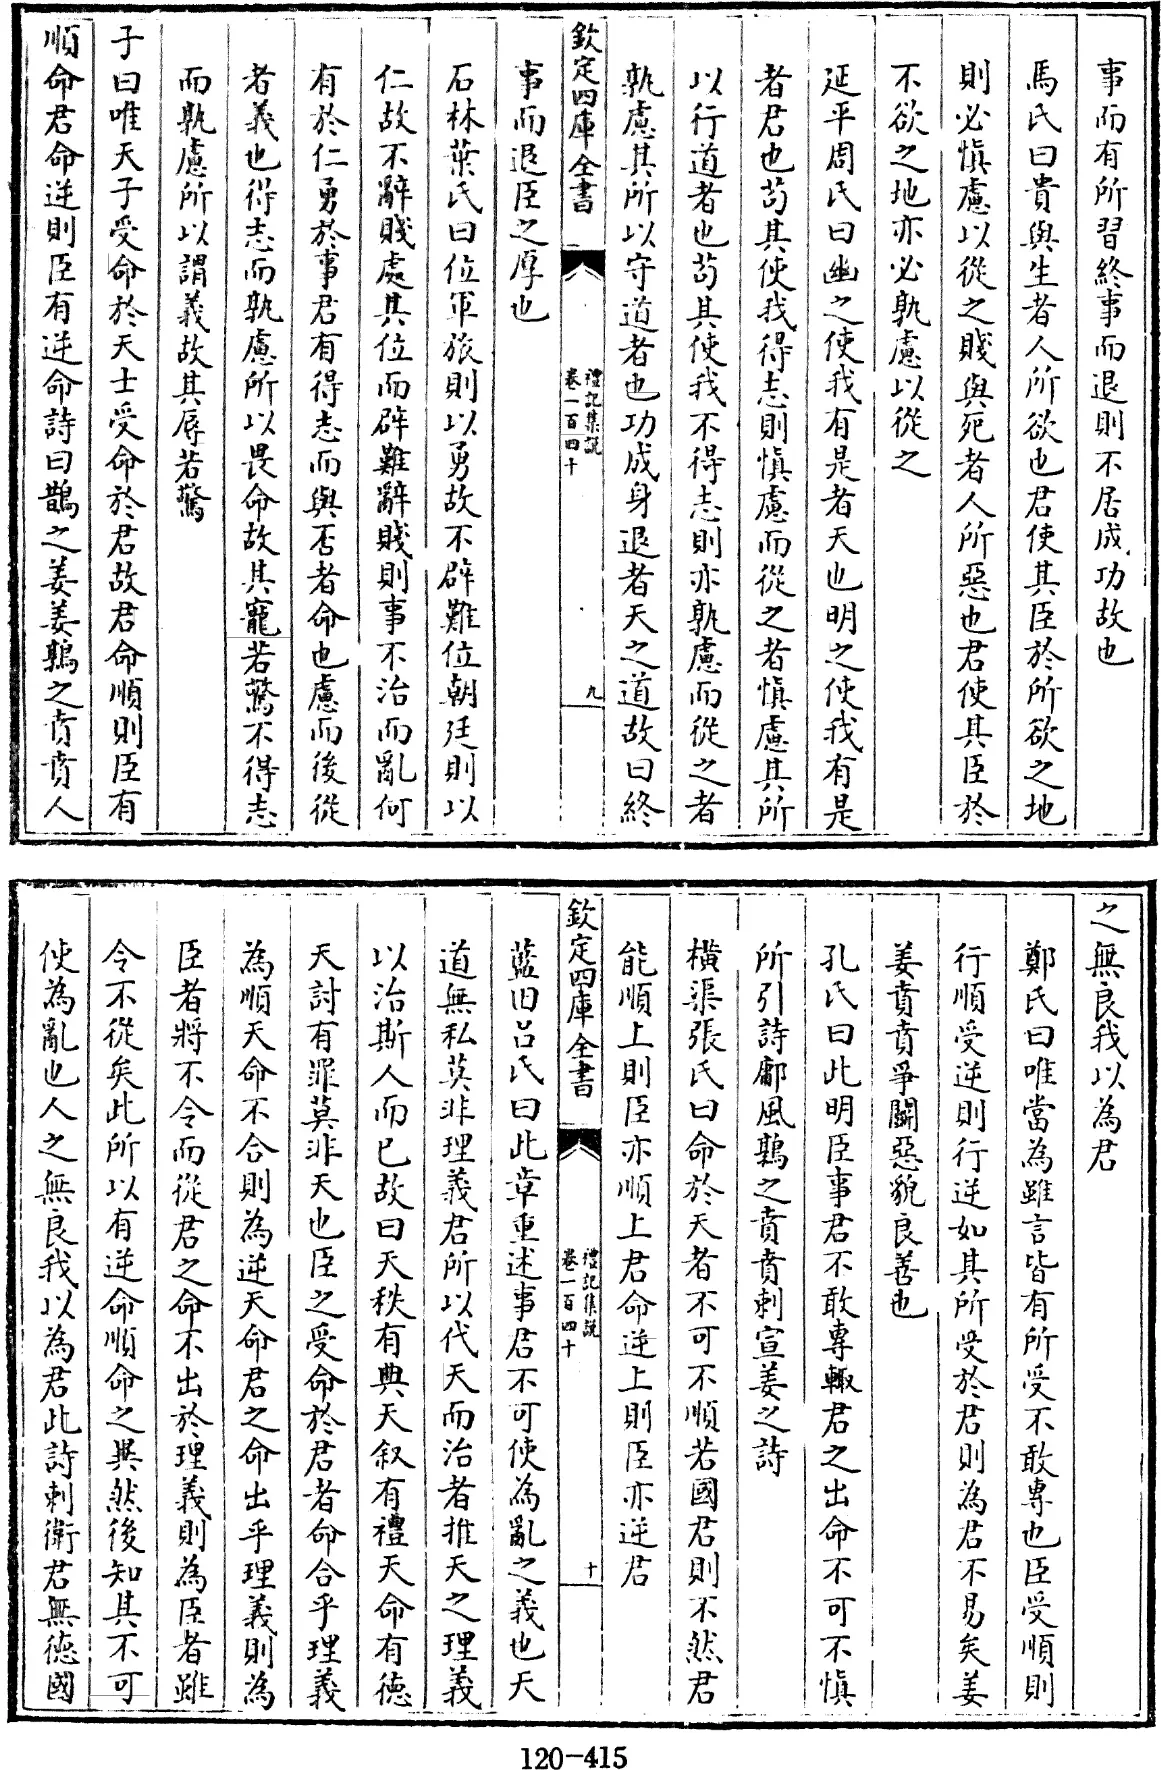 事而有所習終事而退則不居成功故也
馬氏曰貴與生者人所欲也君使其臣於所欲之地
則必慎慮以從之賤與死者人所惡也君使其臣於
不欲之地亦必孰慮以從之
延平周氏曰幽之使我有是者天也明之使我有是
者君也茍其使我得志則慎慮而從之者慎慮其所
以行道者也茍其使我不得志則亦孰慮而從之者
孰慮其所以守道者也功成身退者天之道故曰終
欽定四庫全書
禮記集說
卷一百四十
九
事而退臣之厚也
石林葉氏曰位軍旅則以勇故不辟難位朝廷則以
仁故不辭賤處其位而辟難辭賤則事不治而亂何
有於仁勇於事君有得志而與否者命也慮而後從
者義也得志而孰慮所以畏命故其寵若驚不得志
而孰慮所以謂義故其辱若驚
子曰唯天子受命於天士受命於君故君命順則臣有
順命君命逆則臣有逆命詩曰鵲之姜姜鶉之賁賁人
之無良我以為君
鄭氏曰唯當為雖言皆有所受不敢專也臣受順則
行順受逆則行逆如其所受於君則為君不易矣姜
姜賁賁爭鬭惡貌良善也
孔氏曰此明臣事君不敢專輙君之出命不可不慎
所引詩鄘風鶉之賁賁刺宣姜之詩
橫渠張氏曰命於天者不可不順若國君則不然君
能順上則臣亦順上君命逆上則臣亦逆君
欽定四庫全書
禮記集說
卷一百四十
十
藍田呂氏曰此章重述事君不可使為亂之義也天
道無私莫非理義君所以代天而治者推天之理義
以治斯人而已故曰天秩有典天叙有禮天命有德
天討有罪莫非天也臣之受命於君者命合乎理義
為順天命不合則為逆天命君之命出乎理義則為
臣者將不令而從君之命不出於理義則為臣者雖
令不從矣此所以有逆命順命之異然後知其不可
使為亂也人之無良我以為君此詩刺衛君無德國
120-415